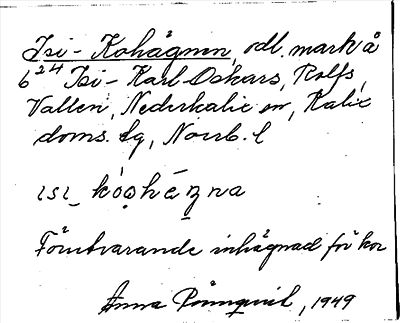 Isi-Kohägnen, odl. mark å
6²⁴ Isi-Karl-Oskars, Rolfs,
Vallen, Nederkalix sn, Kalix
doms. lg, Norrb. l
ɩsɩ_ ko̩ɷhé̱ŋna
Förutvarande inhägnad för kor
Anna Rönnqvist, 1949